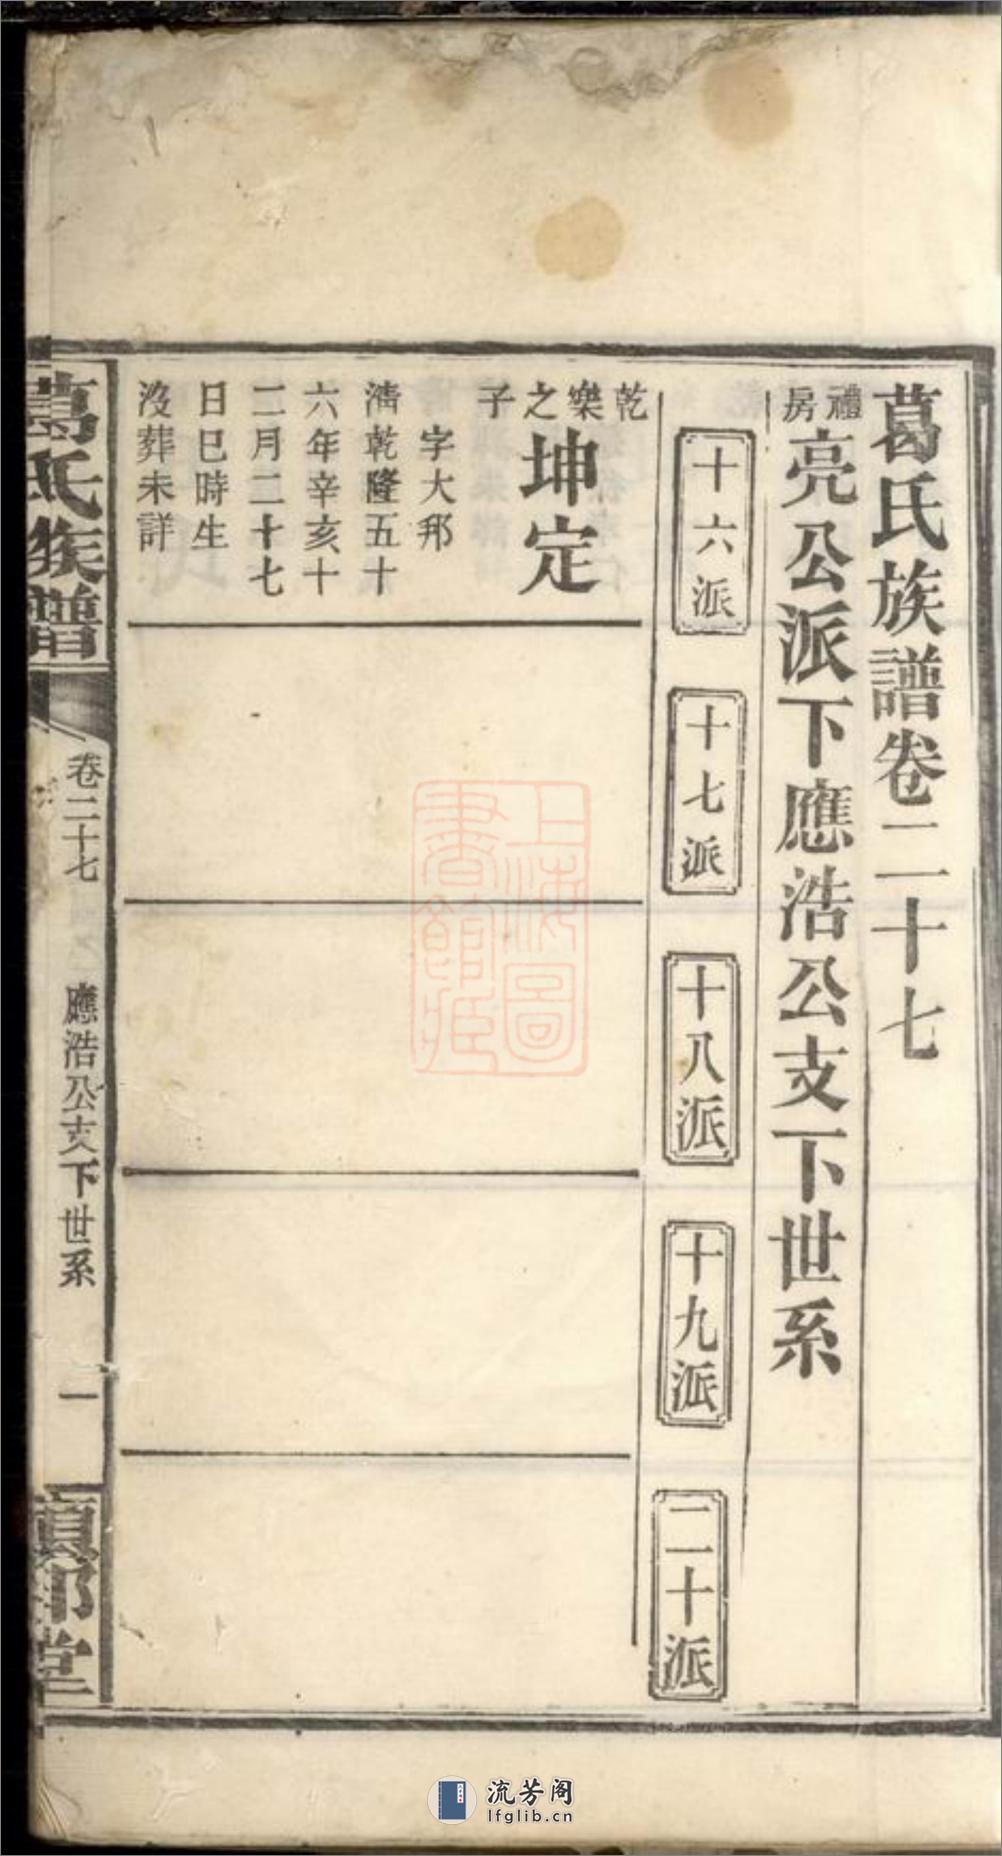 葛氏族譜卷二十七
禮房
亮公派下應浩公支下世系
十六派
十七派
十八派
十九派
二十派
乾樂之子
坤定
字大邦
清乾隆五十
六年辛亥十
二月二十七
日巳時生
沒葬未詳
葛氏族譜
卷二十七
應浩公支下世系
一
上海圖書館藏
流芳阁
lfglib.cn